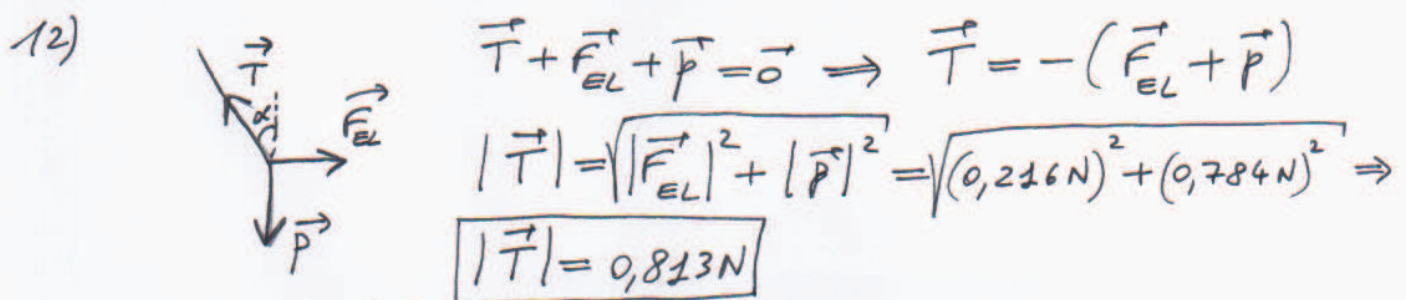 12)
T⃗ + F⃗_EL + p⃗ = 0⃗ ⟹ T⃗ = −(F⃗_EL + p⃗)
T⃗
α
F⃗_EL
p⃗
|T⃗| = √(|F⃗_EL|² + |p⃗|²) = √((0,216N)² + (0,784N)²) ⇒
|T⃗| = 0,813N